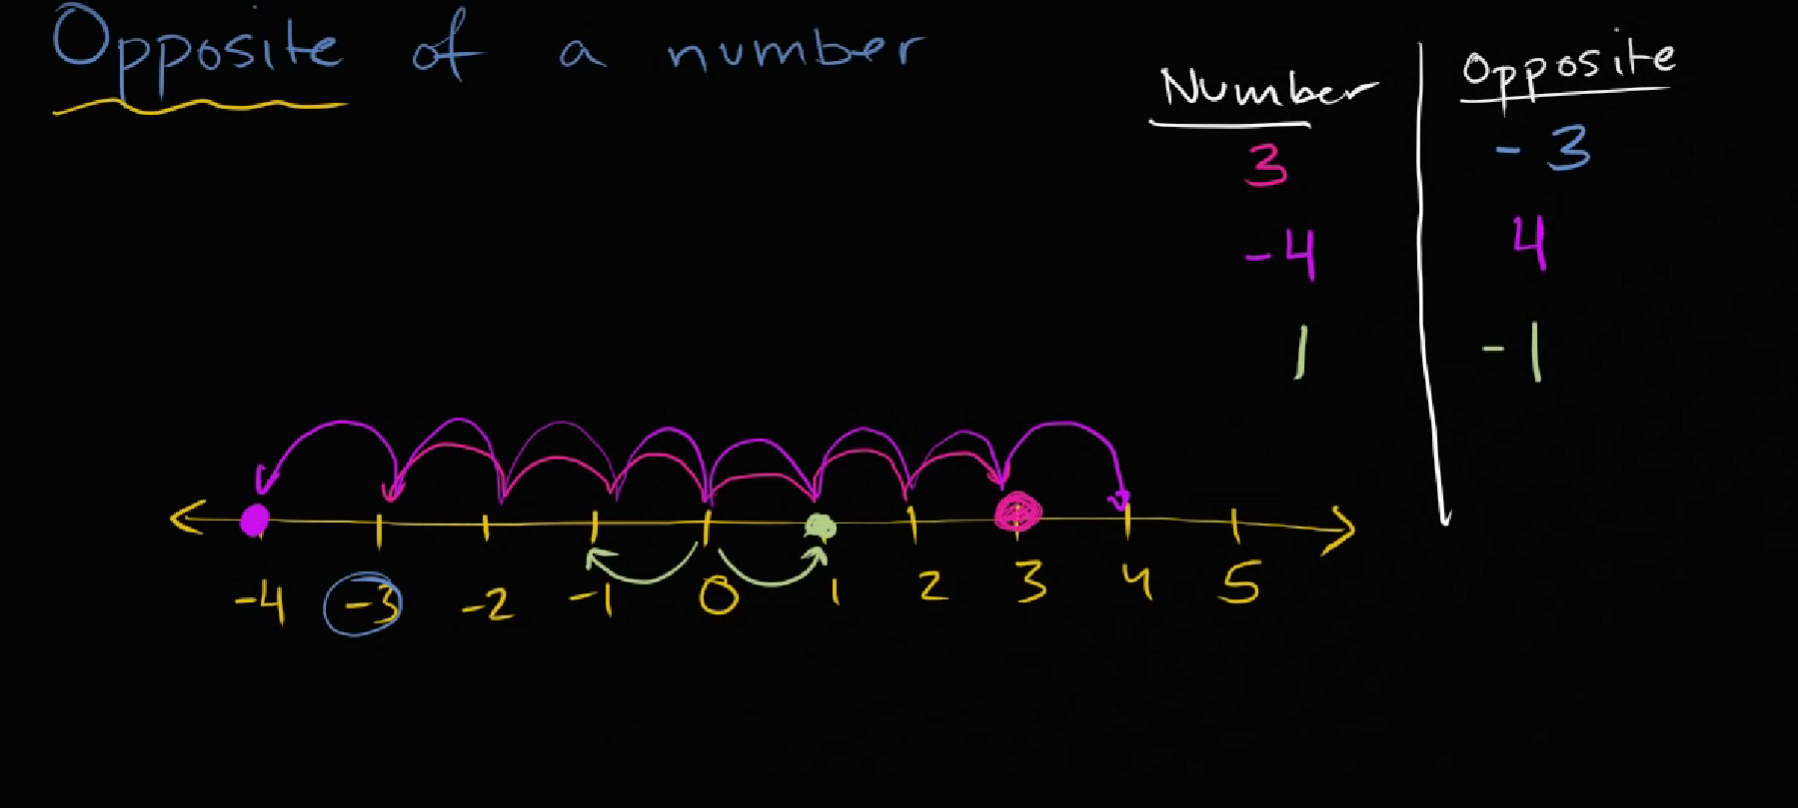 Opposite of a number
Number Opposite
3 -3
-4 4
1 -1
-4 -3 -2 -1 0 1 2 3 4 5